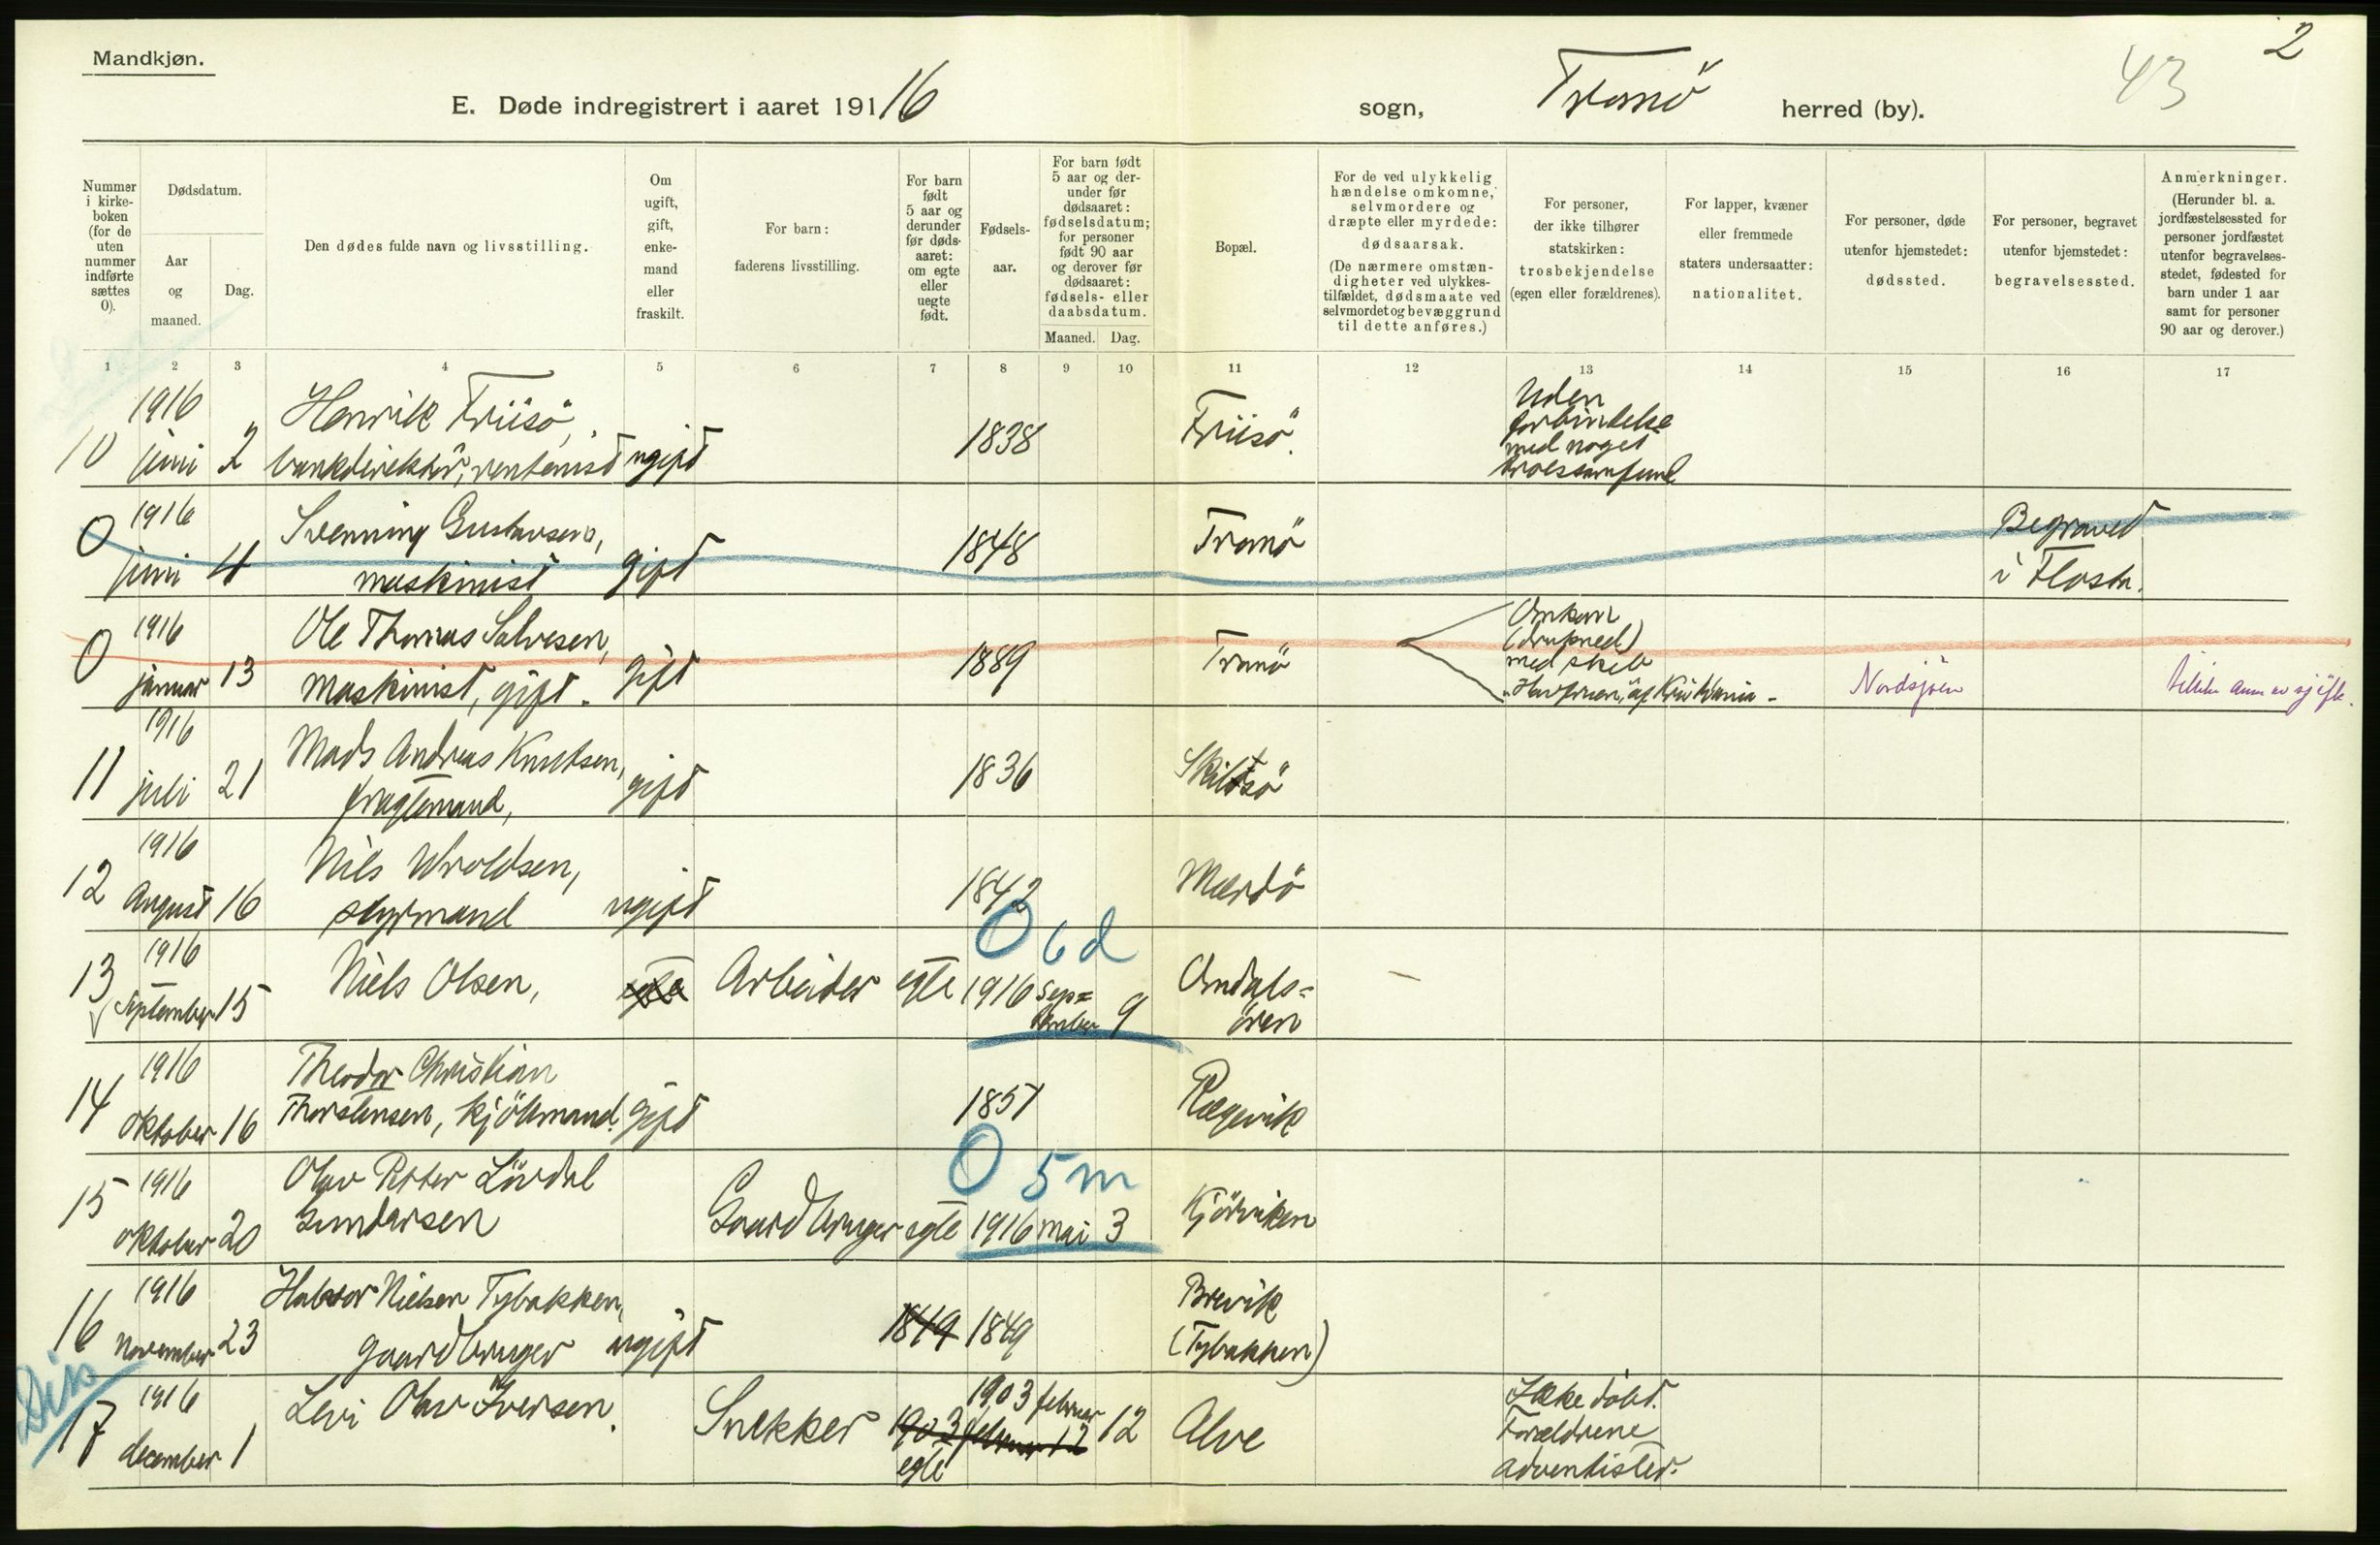 Mandkjøn.
2
43
E. Døde indregistrert i aaret 19116
sogn, Tromö herred (by).
Nummer i kirke- boken (for de uten nummer indførte sættes 0).
Dødsdatum.
Aar og maaned.
Dag.
Den dødes fulde navn og livsstilling.
Om ugift, gift, enke- mand eller fraskilt.
For barn: faderens livsstilling.
For barn født 5 aar og derunder før døds- aaret: om egte eller uegte født.
Fødsels- aar.
For barn født 5 aar og der- under før dødsaaret: fødselsdatum; for personer født 90 aar og derover før dødsaaret: fødsels- eller daabsdatum.
Maaned. Dag.
Bopæl.
For de ved ulykkelig hændelse omkomne, selvmordere og dræpte eller myrdede: dødsaarsak. (De nærmere omstæn- digheter ved ulykkes- tilfældet, dødsmaate ved selvmordet og bevæggrund til dette anføres.)
For personer, der ikke tilhører statskirken: trosbekjendelse (egen eller forældrenes).
For lapper, kvæner eller fremmede staters undersaatter: nationalitet.
For personer, døde utenfor hjemstedet: dødssted.
For personer, begravet utenfor hjemstedet: begravelsessted.
Anmerkninger. (Herunder bl. a. jordfæstelsessted for personer jordfæstet utenfor begravelses- stedet, fødested for barn under 1 aar samt for personer 90 aar og derover.)
1 2 3 4 5 6 7 8 9 10 11 12 13 14 15 16 17
1916 Henrik Friisö, Friisö. Uden forbindelse
10 juni 2 bankdirektör, rentenist ugift 1838 med noget troessamfund
0 1916 Svenning Gustavsen, Tromö Begravet
juni 4 maskinist gift 1848 i Flosta.
0 1916 Ole Thomas Salvesen, Tromö Omkom (drukned)
januar 13 maskinist, gift. gift 1889 med skib "Havfruen," af Kristiania - Nordsjöen
1916 Mads Andreas Knutsen, Skilsö
11 juli 21 fragtemand, gift 1836
1916 Nils Uvoldsen, Mærdö
12 August 16 styrmand ugift 1842
O 6 d
13 1916 Niels Olsen, egte Arbeider egte 1916 Sep= Omdals=
September 15 tember 9 ören
1916 Theodor Christian
14 oktober 16 Thorstensen, kjöbmand. gift 1851 Rægevik
O 5 m
1916 Olav Petter Lövdal
15 oktober 20 Gundersen Gaardbruger egte 1916 mai 3 Kjörviken
1916 Halvor Nielsen Tybakken, Brevik
16 November 23 gaardbruger ugift 1819 1849 (Tybakken)
Dis 1916 Levi Olav Iversen. 1903 februar Ikke döbt.
17 december 1 Snekker 1903 februar 12 12 Alve Forældrene
egte adventister.